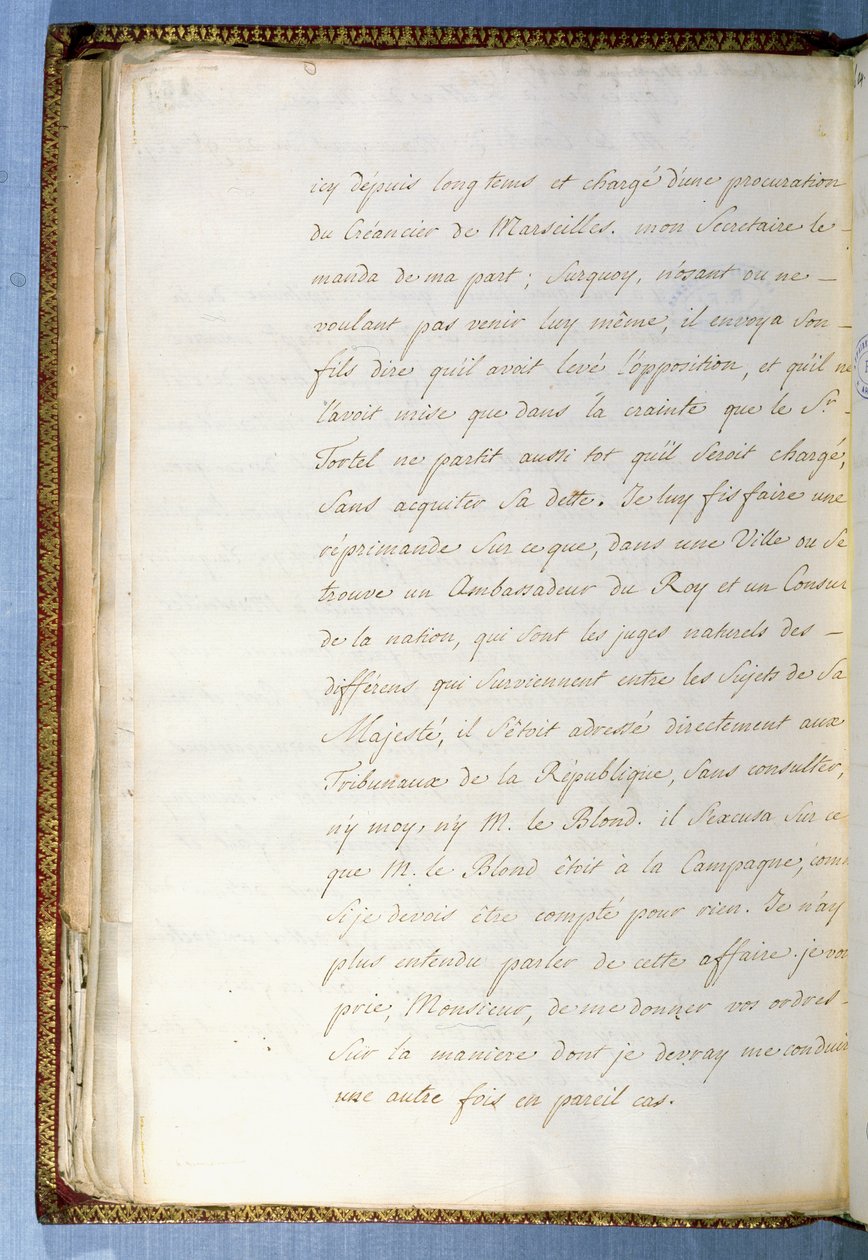 icy dépuis long tems et chargé d'une procuration
du Créancier de Marseilles. mon Secretaire le -
manda de ma part; Surquoy, n'osant ou ne -
voulant pas venir luy même, il envoya Son -
fils dire qu'il avoit levé l'opposition, et qu'il ne
l'avoit mise que dans la crainte que le Sr. -
Tortel ne partit aussi tot qu'il Seroit chargé,
Sans acquiter Sa dette. Je luy fis faire une
réprimande Sur ce que, dans une Ville ou Se
trouve un Ambassadeur du Roy et un Consul
de la nation, qui Sont les juges naturels des -
différens qui Surviennent entre les Sujets de Sa
Majesté, il S'étoit adressé directement aux
Tribunaux de la République, Sans consulter,
n'y moy, n'y M. le Blond. il S'excusa Sur ce
que M. le Blond étoit à la Campagne, comm
Si je devois être compté pour rien. Je n'ay
plus entendu parler de cette affaire. je vou
prie, Monsieur, de me donner vos ordres -
Sur la maniere dont je devray me conduir
une autre fois en pareil cas.